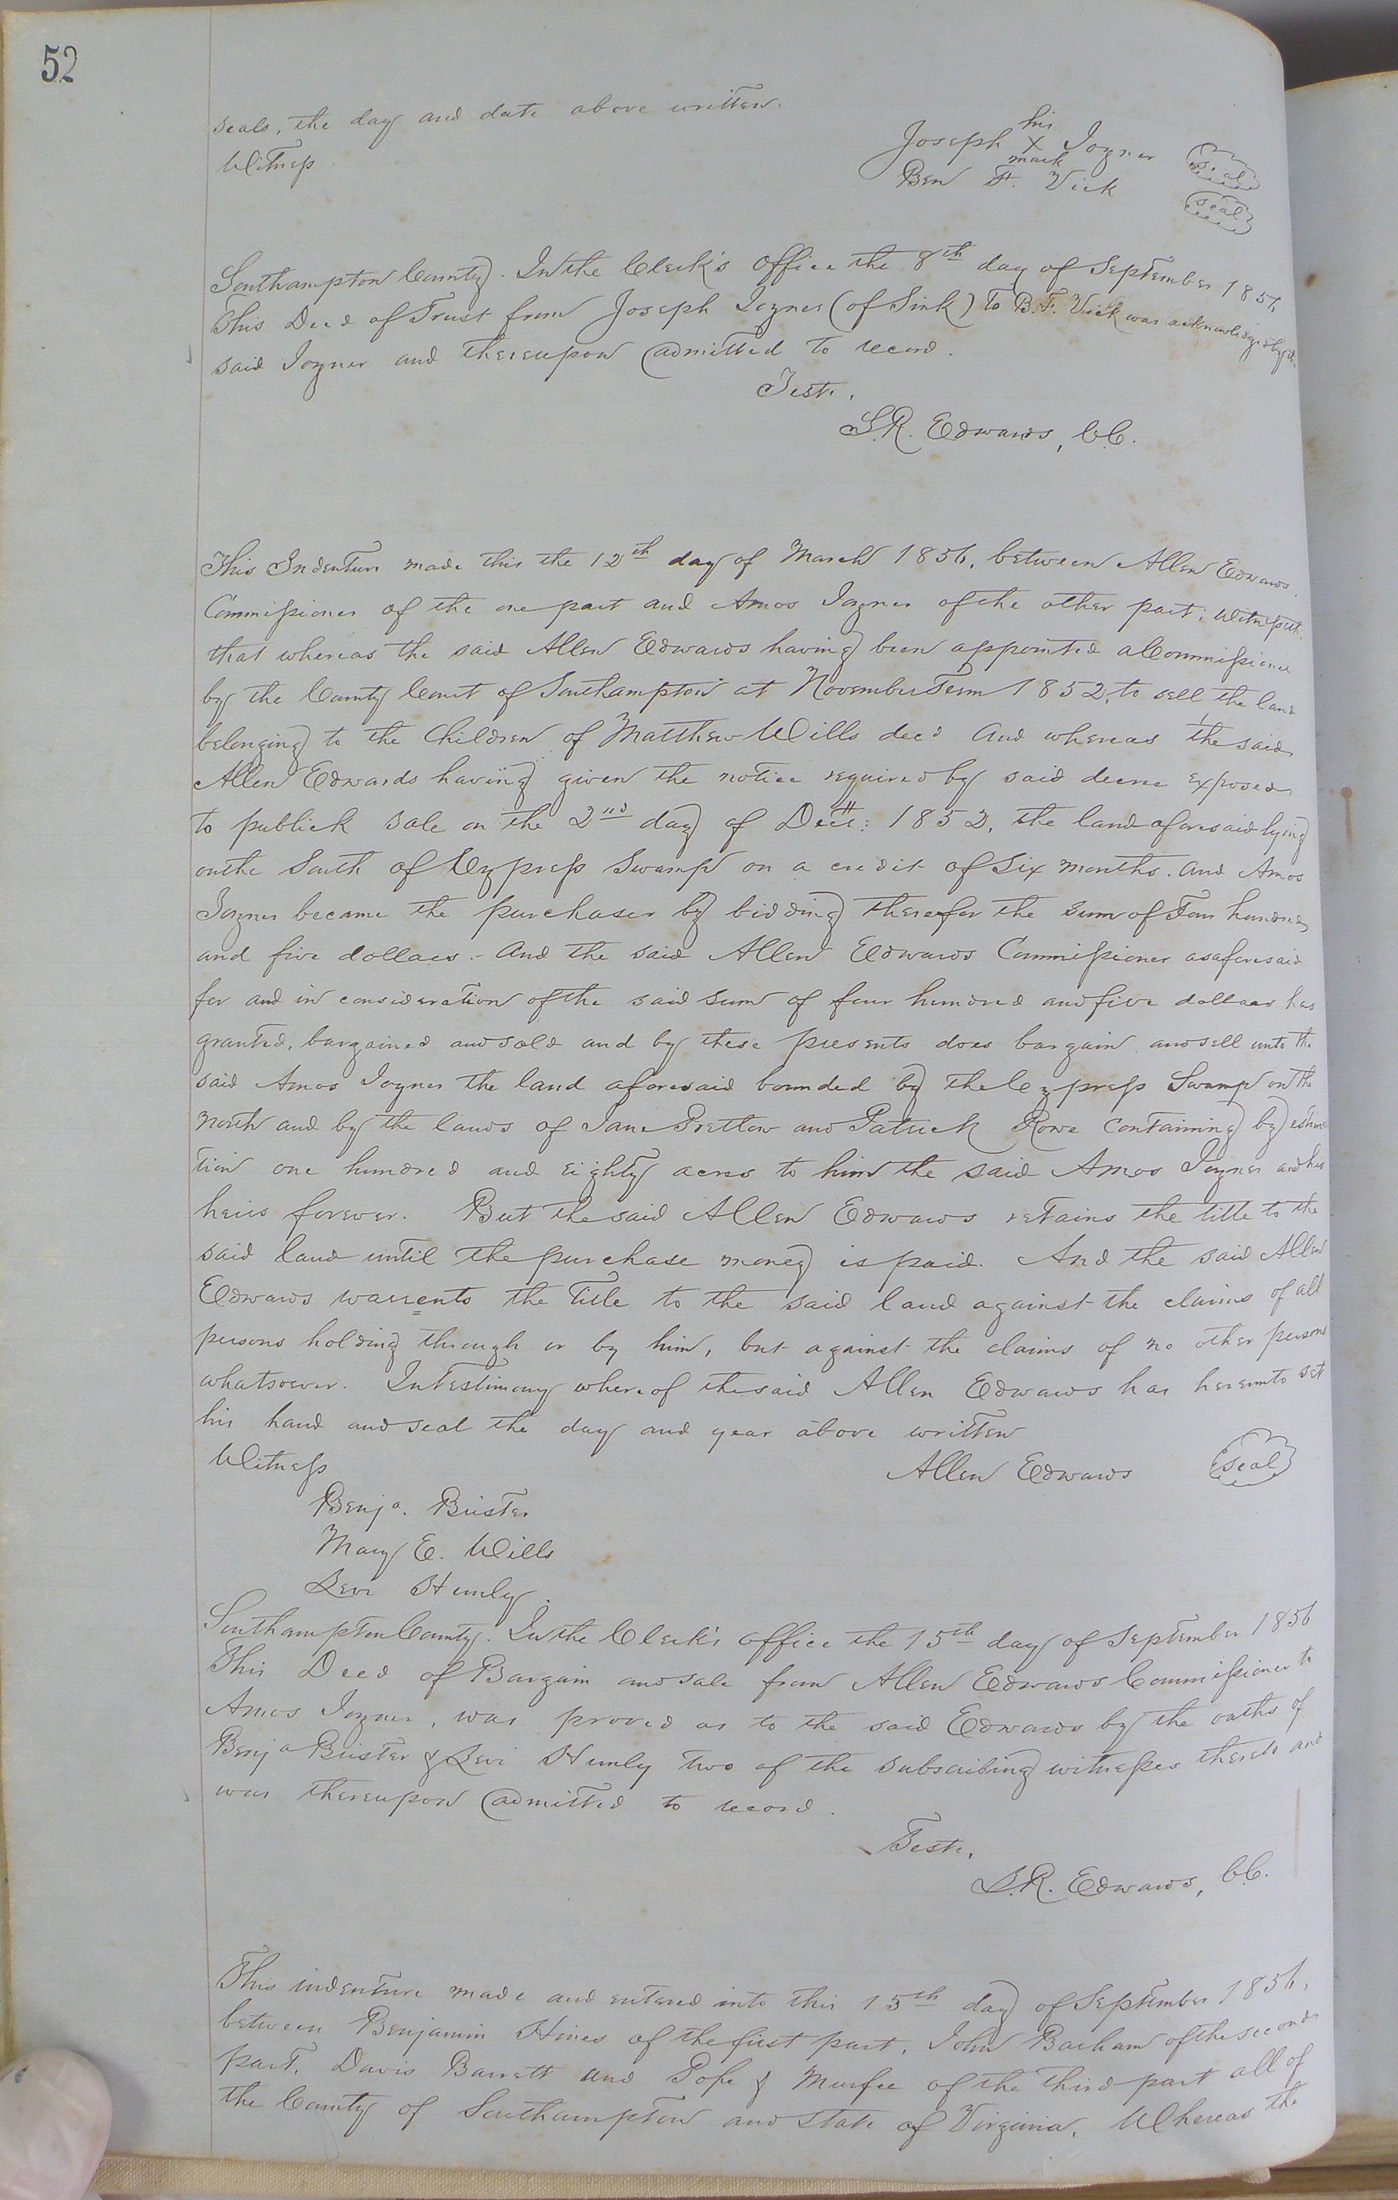 52
seals, the day and date above written.
his
Joseph X Joyner seal
mark
Witness
Ben F. Vick seal
Southampton County. In the Clerk's office the 8th day of September 1856,
This Deed of Trust from Joseph Joyner (of Sink) to B. F. Vick was acknowledged by the
said Joyner and thereupon admitted to record.
Teste,
L.R. Edwards, C.C.
This Indenture made this the 12th day of March 1856, between Allen Edwards,
Commissioner of the one part and Amos Joyner of the other part; Witnesseth,
that whereas the said Allen Edwards having been appointed a Commissioner
by the County Court of Southampton at November Term 1852, to sell the land
belonging to the Children of Matthew Wills dec'd And whereas the said
Allen Edwards having given the notice required by said decree exposed
to publick sale on the 2nd day of Decr: 1852, the land aforesaid lying
on the South of Cypress Swamp on a credit of Six months. and Amos
Joyner became the purchaser by bidding therefor the sum of Four hundred
and five dollars. - And the said Allen Edwards Commissioner as aforesaid
for and in consideration of the said sum of four hundred and five dollars has
granted, bargained and sold and by these presents does bargain and sell unto the
said Amos Joyner the land aforesaid bounded by the Cypress Swamp on the
north and by the lands of Jane Pretlow and Patrick Rowe containing by estima
tion one hundred and eighty acres to him the said Amos Joyner and his
heirs forever. But the said Allen Edwards retains the title to the
said land until the purchase money is paid. And the said Allen
Edwards warrents the Title to the said land against the claims of all
persons holding through or by him, but against the claims of no other persons
whatsoever. In Testimony whereof the said Allen Edwards has hereunto set
his hand and seal the day and year above written
Witness
Allen Edwards seal
Benja. Brister
Mary E. Wills
Levi Humly.
Southampton County. In the Clerk's office the 15th day of September 1856
This Deed of Bargain and sale from Allen Edwards Commissioner to
Amos Joyner, was proved as to the said Edwards by the oaths of
Benja Brister & Levi Humly two of the subscribing witnesses thereto and
was thereupon admitted to record.
Teste,
L.R. Edwards, C.C.
This indenture made and entered into this 15th day of September 1856,
between Benjamin Hines of the first part, John Barham of the second
part, Davis Barrett and Pope & Murfee of the third part all of
the County of Southampton and State of Virginia. Whereas the